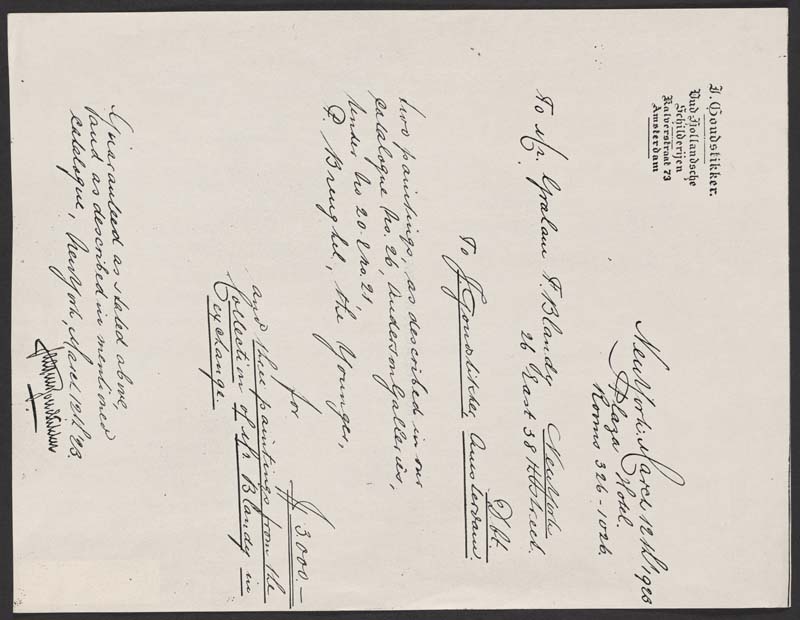 J. Goudstikker.
Oud Hollandsche
Schilderijen
Kalverstraat 73
Amsterdam
New York. March 12th 1923
Plaza Hotel.
Rooms 326-1026.
To Mr. Graham F. Blandy New York
26 East 38th Street.
Dbt.
To J Goudstikker, Amsterdam.
two paintings, as described in our
catalogue No. 26, Anderson Galleries,
under No 20 & No. 21
P. Breughel, the Younger,
for $ 3000.—
and three paintings from the
Collection of Mr. Blandy in
exchange.
Guaranteed as stated above
and as described in mentioned
catalogue, New York, March 12th 23.